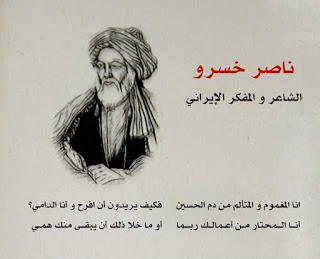 ناصر خسرو
الشاعر و المفكر الإيراني
انا المغموم و المتألم من دم الحسين فكيف يريدون أن افرح و أنا الدامي؟
أنـا الـمحتار مـن أعمـالـك ربـمـا أو ما خلا ذلك أن يبقـى منك همـي